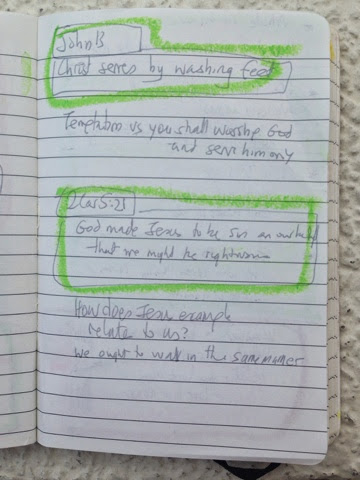 John 13
Christ serves by washing feet
Temptation vs you shall worship God
and serve him only
2 Cor 5:21
God made Jesus to be sin on our behalf
that we might be righteous
How does Jesus example
relate to us?
we ought to walk in the same manner